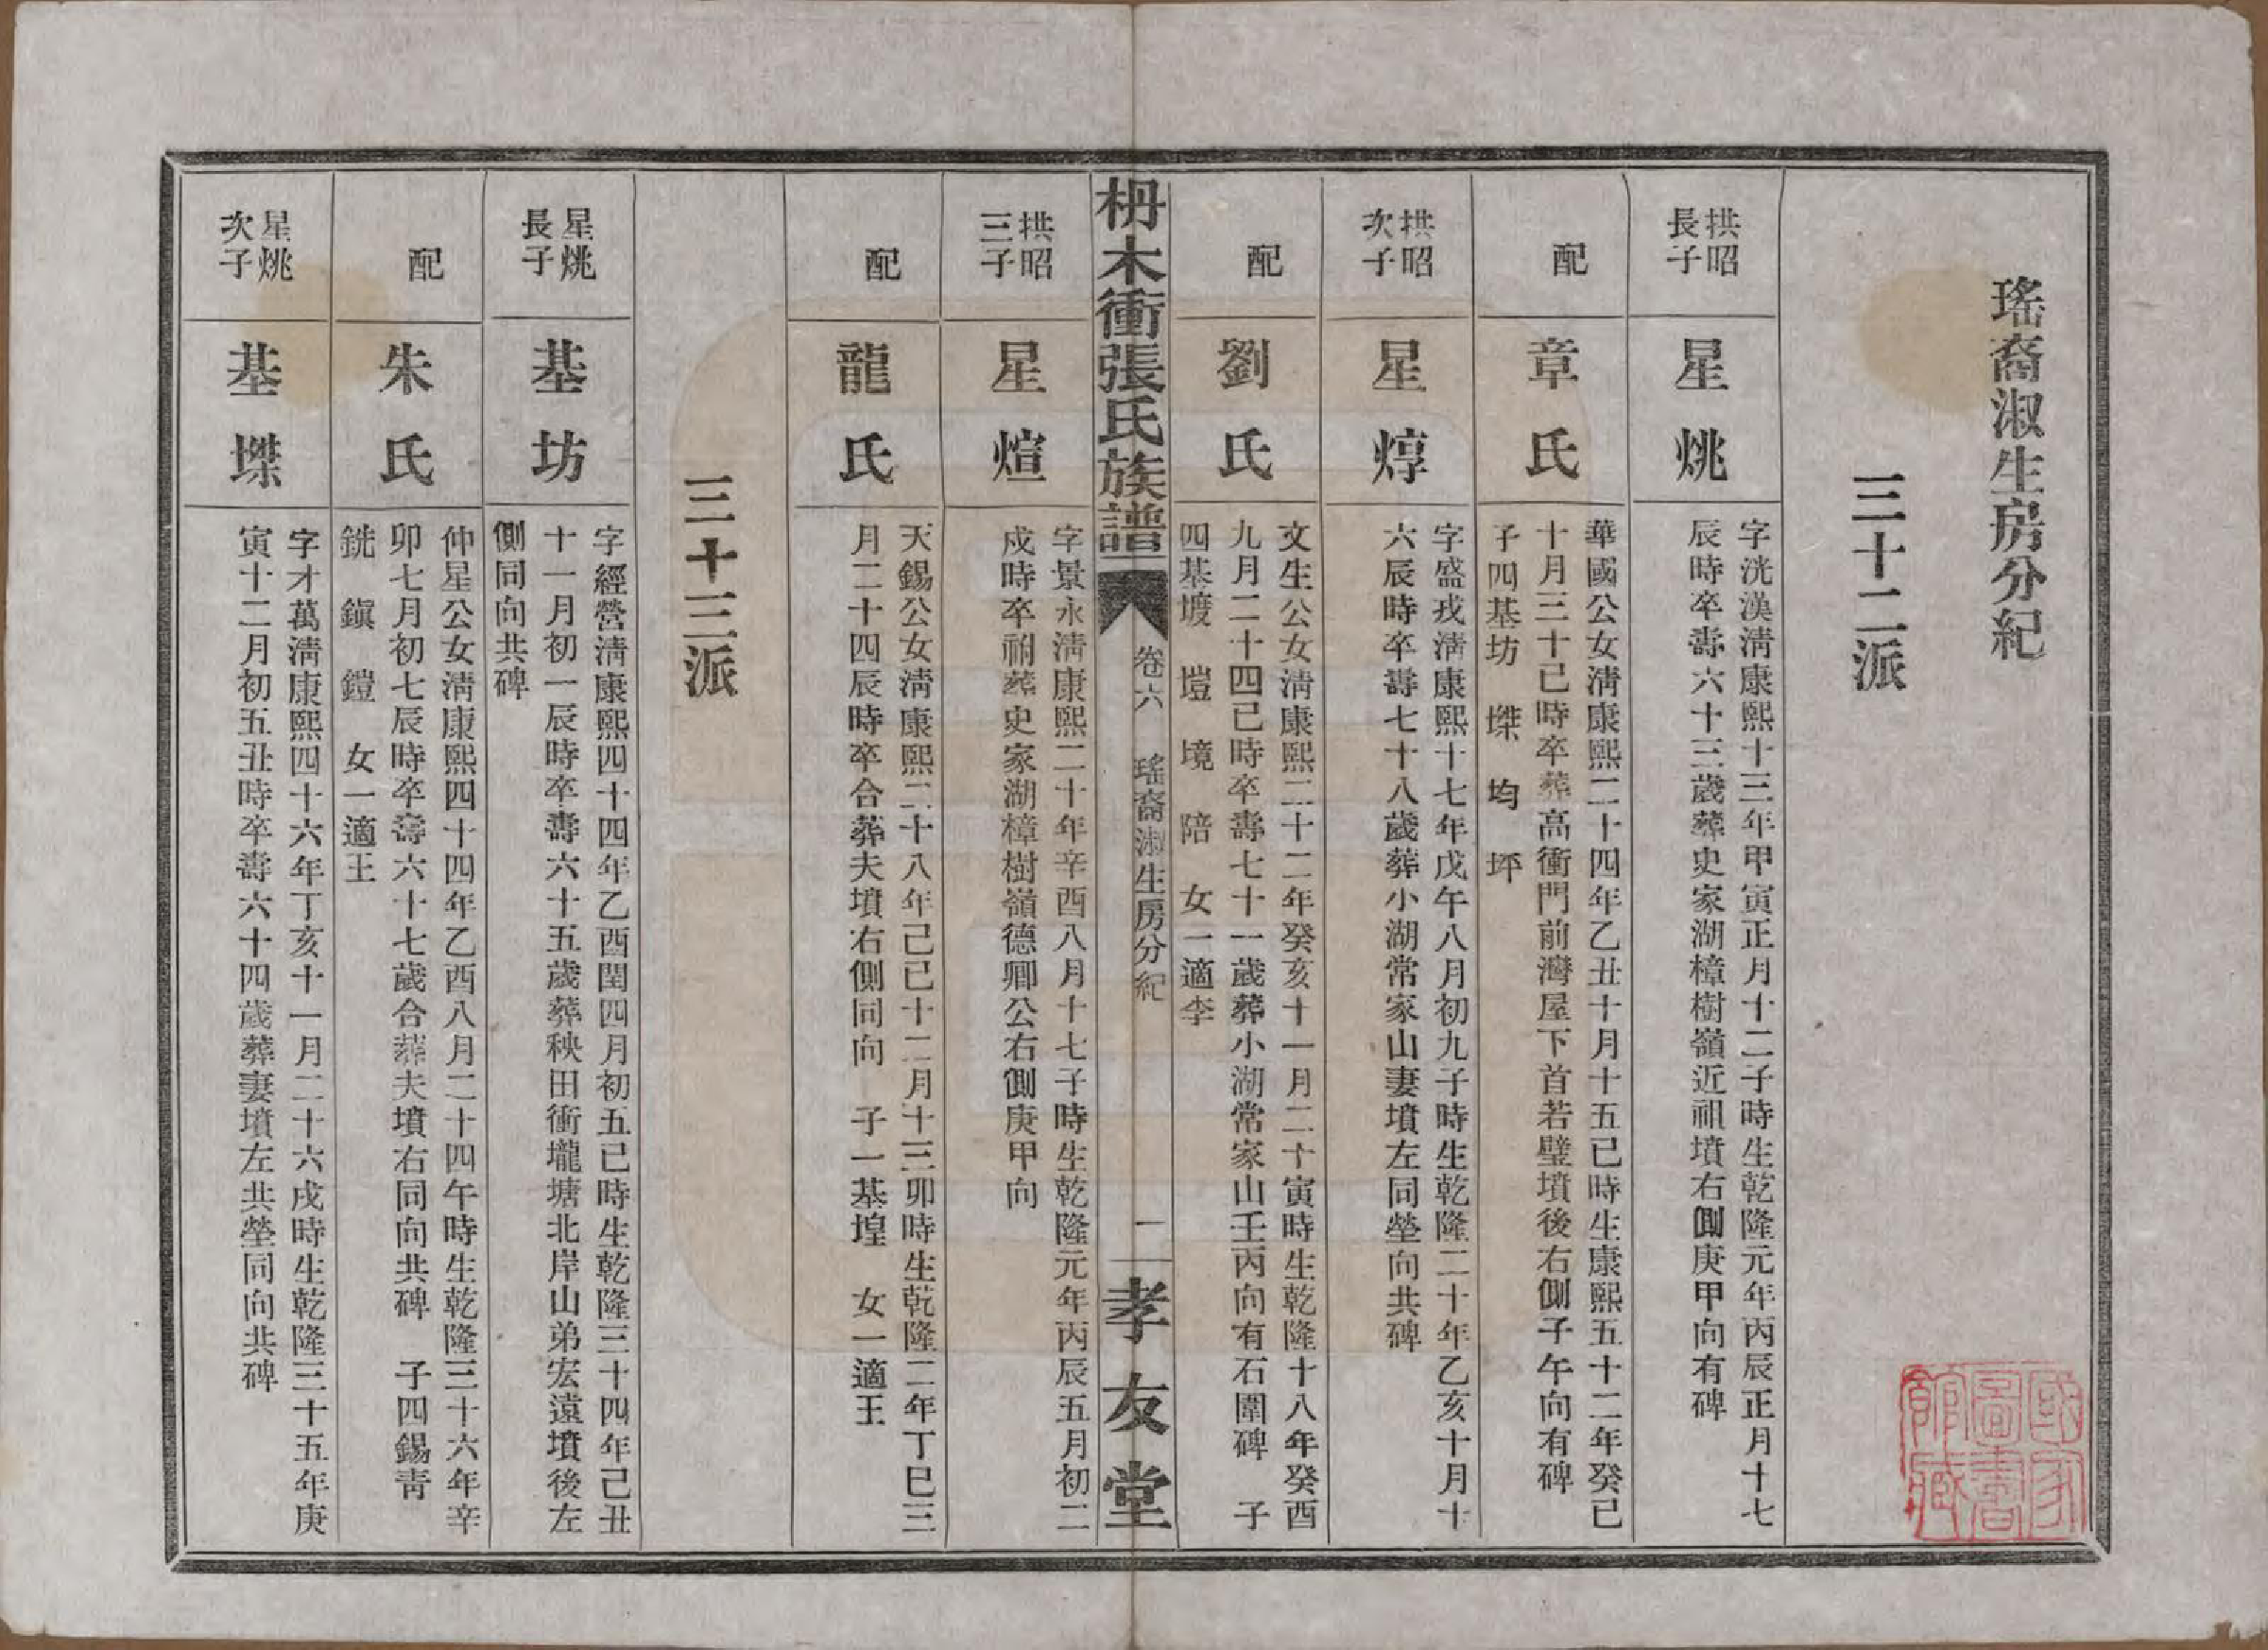 瑤裔淑生房分紀
三十二派
拱昭
長子
星烑
字洸漢淸康熙十三年甲寅正月十二子時生乾隆元年丙辰正月十七
辰時卒壽六十三歲葬史家湖樟樹嶺近祖墳右側庚甲向有碑
配
章氏
華國公女淸康熙二十四年乙丑十月十五巳時生康熙五十二年癸巳
十月三十巳時卒葬高衝門前灣屋下首若璧墳後右側子午向有碑
子四基坊 堞 均 坪
拱昭
次子
星焞
字盛戎淸康熙十七年戊午八月初九子時生乾隆二十年乙亥十月十
六辰時卒壽七十八歲葬小湖常家山妻墳左同塋向共碑
配
劉氏
文生公女淸康熙二十二年癸亥十一月二十寅時生乾隆十八年癸酉
九月二十四巳時卒壽七十一歲葬小湖常家山壬丙向有石圍碑 子
四基墢 塏 境 陪 女一適李
枬木衝張氏族譜
卷六 瑤裔淑生房分紀
一
孝友堂
拱昭
三子
星煊
字景永淸康熙二十年辛酉八月十七子時生乾隆元年丙辰五月初二
戍時卒祔葬史家湖樟樹嶺德卿公右側庚甲向
配
龍氏
天錫公女淸康熙二十八年己巳十二月十三卯時生乾隆二年丁巳三
月二十四辰時卒合葬夫墳右側同向 子一基堭 女一適王
三十三派
星烑
長子
基坊
字經營淸康熙四十四年乙酉閏四月初五巳時生乾隆三十四年己丑
十一月初一辰時卒壽六十五歲葬秧田衝壠塘北岸山弟宏遠墳後左
側同向共碑
配
朱氏
仲星公女淸康熙四十四年乙酉八月二十四午時生乾隆三十六年辛
卯七月初七辰時卒壽六十七歲合葬夫墳右同向共碑 子四錫靑
銑 鎭 鎧 女一適王
星烑
次子
基堞
字才萬淸康熙四十六年丁亥十一月二十六戌時生乾隆三十五年庚
寅十二月初五丑時卒壽六十四歲葬妻墳左共塋同向共碑
國家圖書館藏